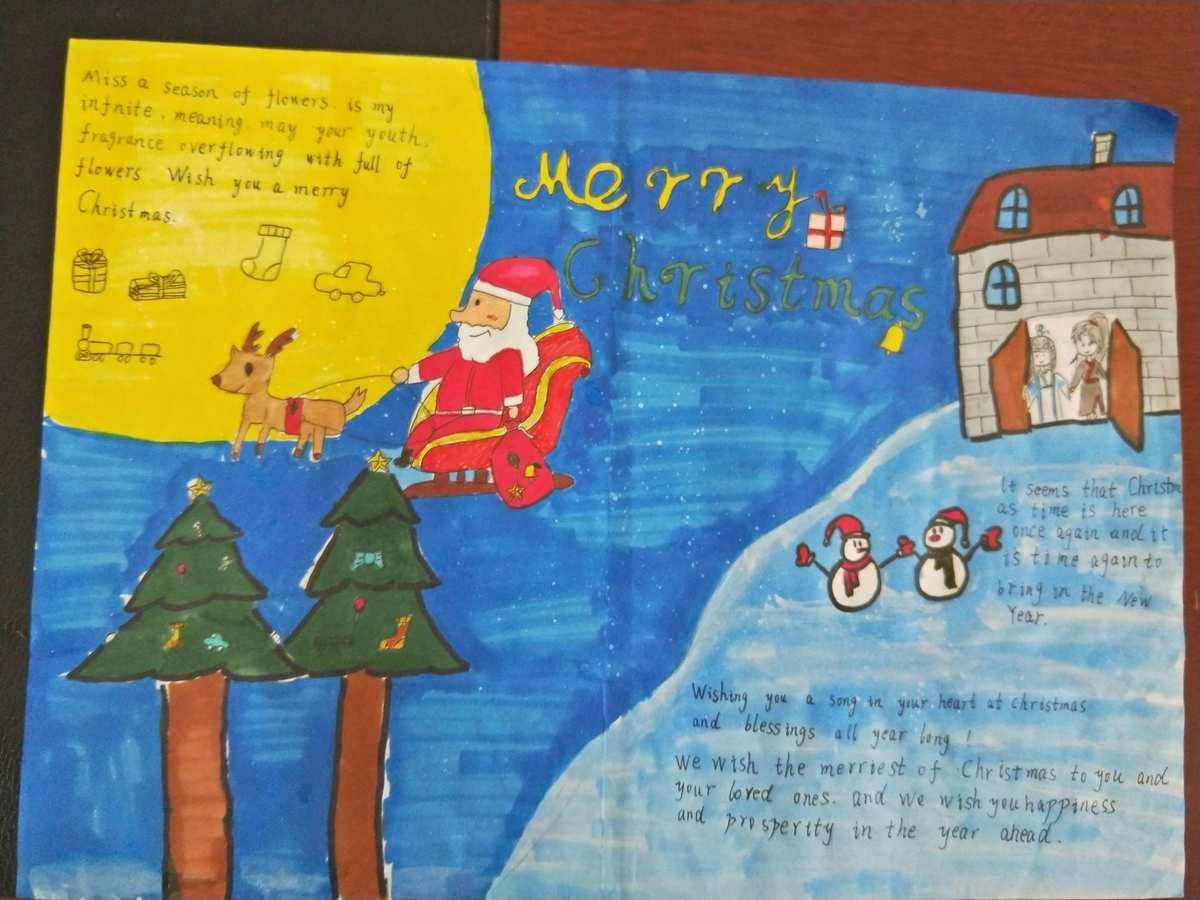 Miss a season of flowers. is my
infnite. meaning. may your youth.
fragrance overflowing with full of
flowers Wish you a merry
Christmas.
Merry
Christmas
It seems that Christm
as time is here
once again and it
is time again to
bring in the New
Year.
Wishing you a song in your heart at christmas
and blessings all year long !
we wish the merriest of Christmas to you and
your loved ones. and we wish you happiness
and prosperity in the year ahead.